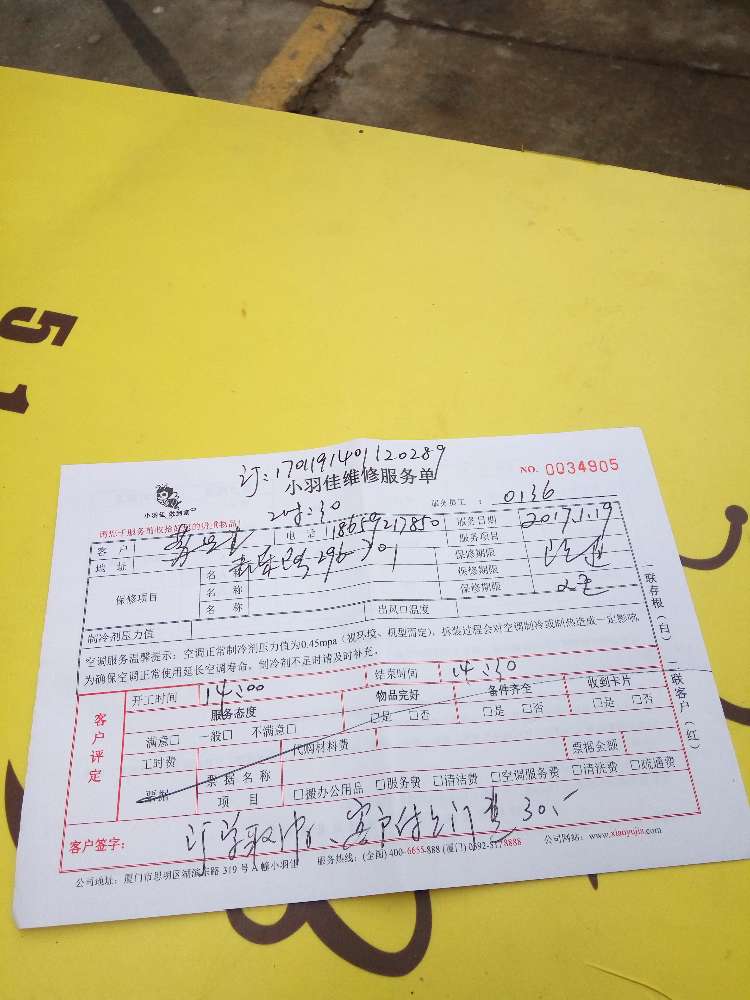 51
订:17011914011 20289
小羽佳维修服务单
NO. 0034905
小羽佳
服务员工 : 0136
客 户
电 话 18659217850
服务日期 2017.1.19
地 址 296-301
服务项目
保修项目
名 称
名 称
名 称
保修期限
保修期限
保修期限
制冷剂压力值
出风口温度
空调服务温馨提示:空调正常制冷剂压力值为0.45mpa(视环境、机型而定),拆装过程会对空调制冷或制热造成一定影响,
为确保空调正常使用延长空调寿命,制冷剂不足时请及时补充。
开工时间 14:00
结束时间 14:30
客户评定
服务态度
物品完好
备件齐全
收到卡片
满意□ 一般□ 不满意□
□是 □否
□是 □否
□是 □否
工时费
代购材料费
票据
票据名称
票据金额
项 目
□搬办公用品 □服务费 □清洁费 □空调服务费 □清洗费 □疏通费
客户签字:
订单取消、客户付上门费30.-
公司地址:厦门市思明区湖滨东路 319 号 A 幢小羽佳
服务热线:(全国) 400-6655-888 (厦门) 0592-5178888
公司网络:www.xiaoyujia.com
一联存根(白)
二联客户(红)